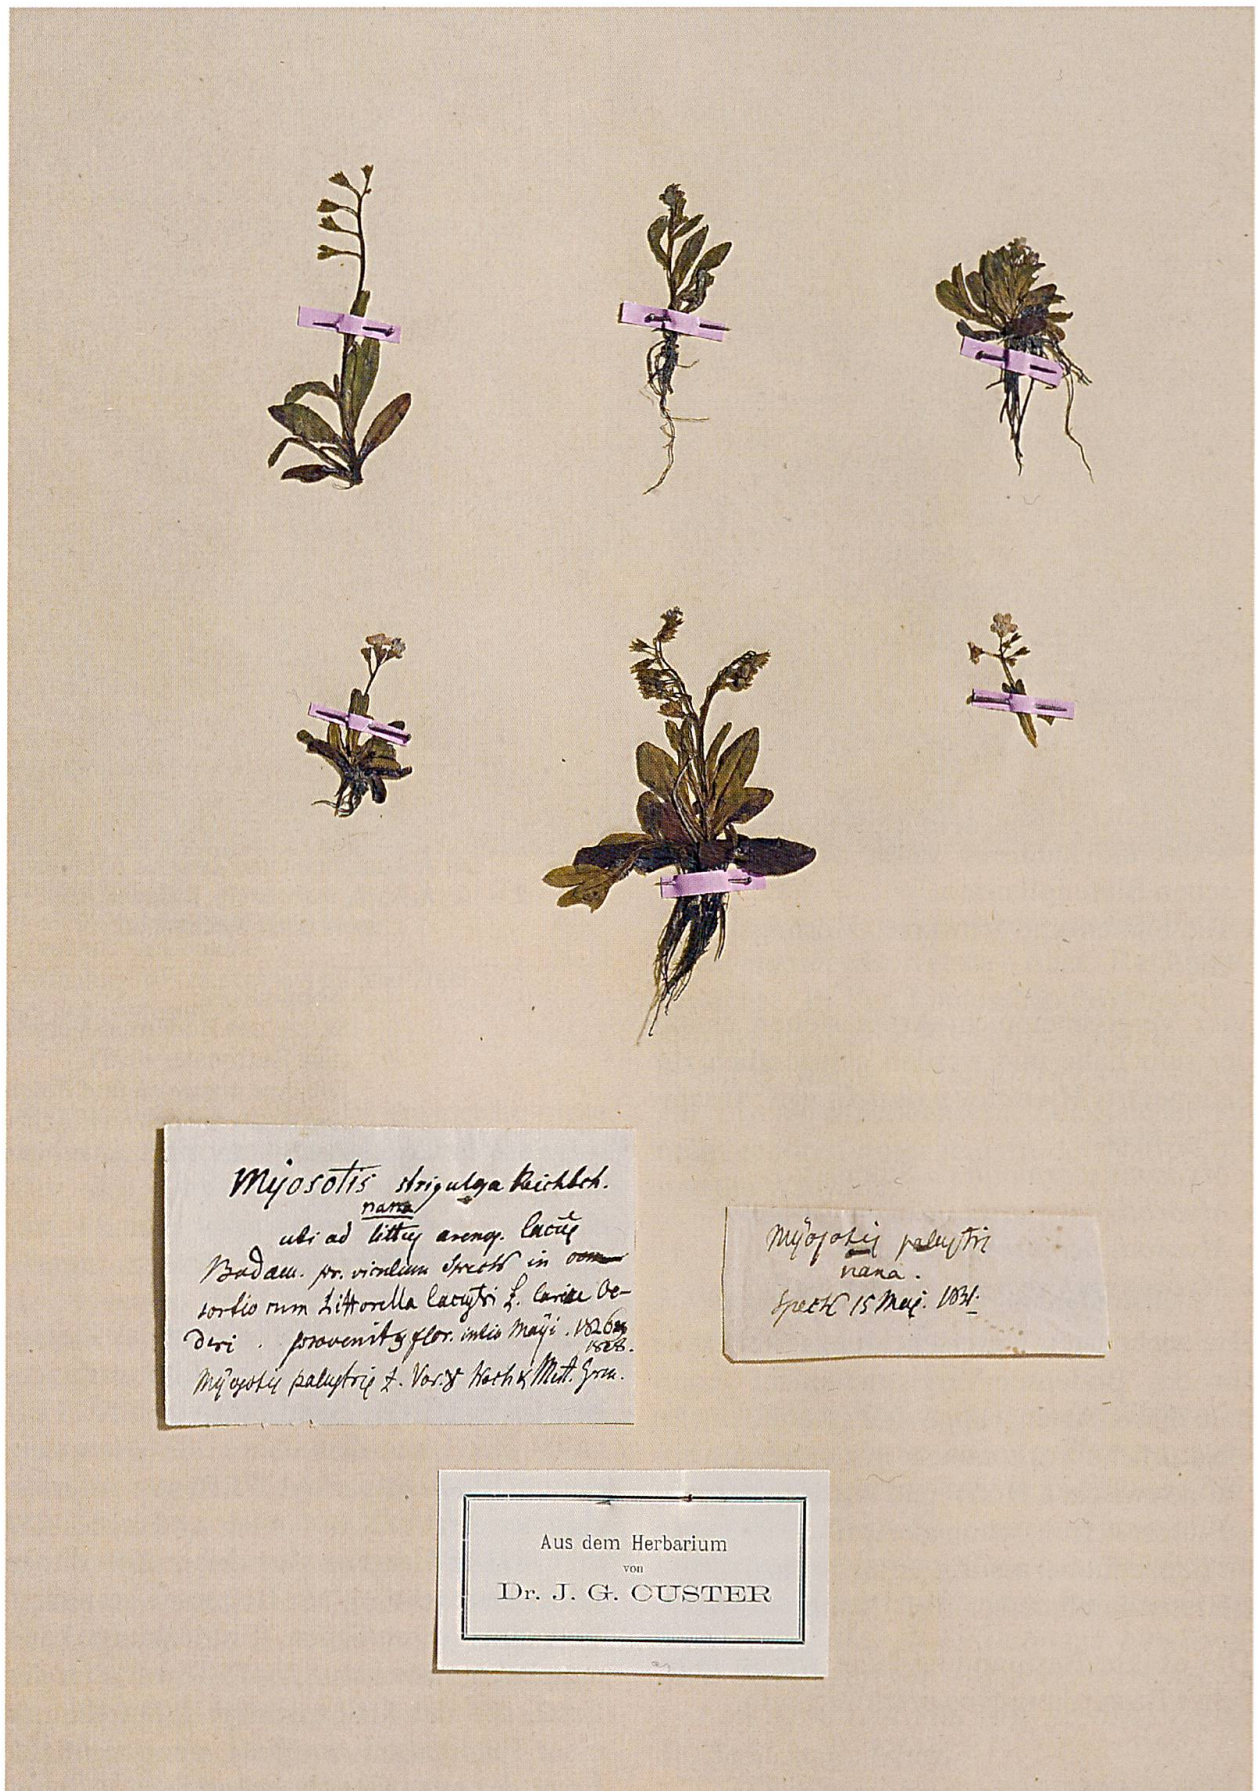 Myosotis strigulosa Reichbch.
nana
ubi ad littus arenos. lacus
Bodam. pr. viculum Speck in con-
sortio cum Littorella lacustri L. Carice Oe-
deri . provenit & flor. initio Maji . 1826
1828.
Myosotis palustris L. Var. γ Koch & Mert. Grm.
Myosotis palustris
nana.
Speck 15 Maj. 1831.
Aus dem Herbarium
von
Dr. J. G. CUSTER